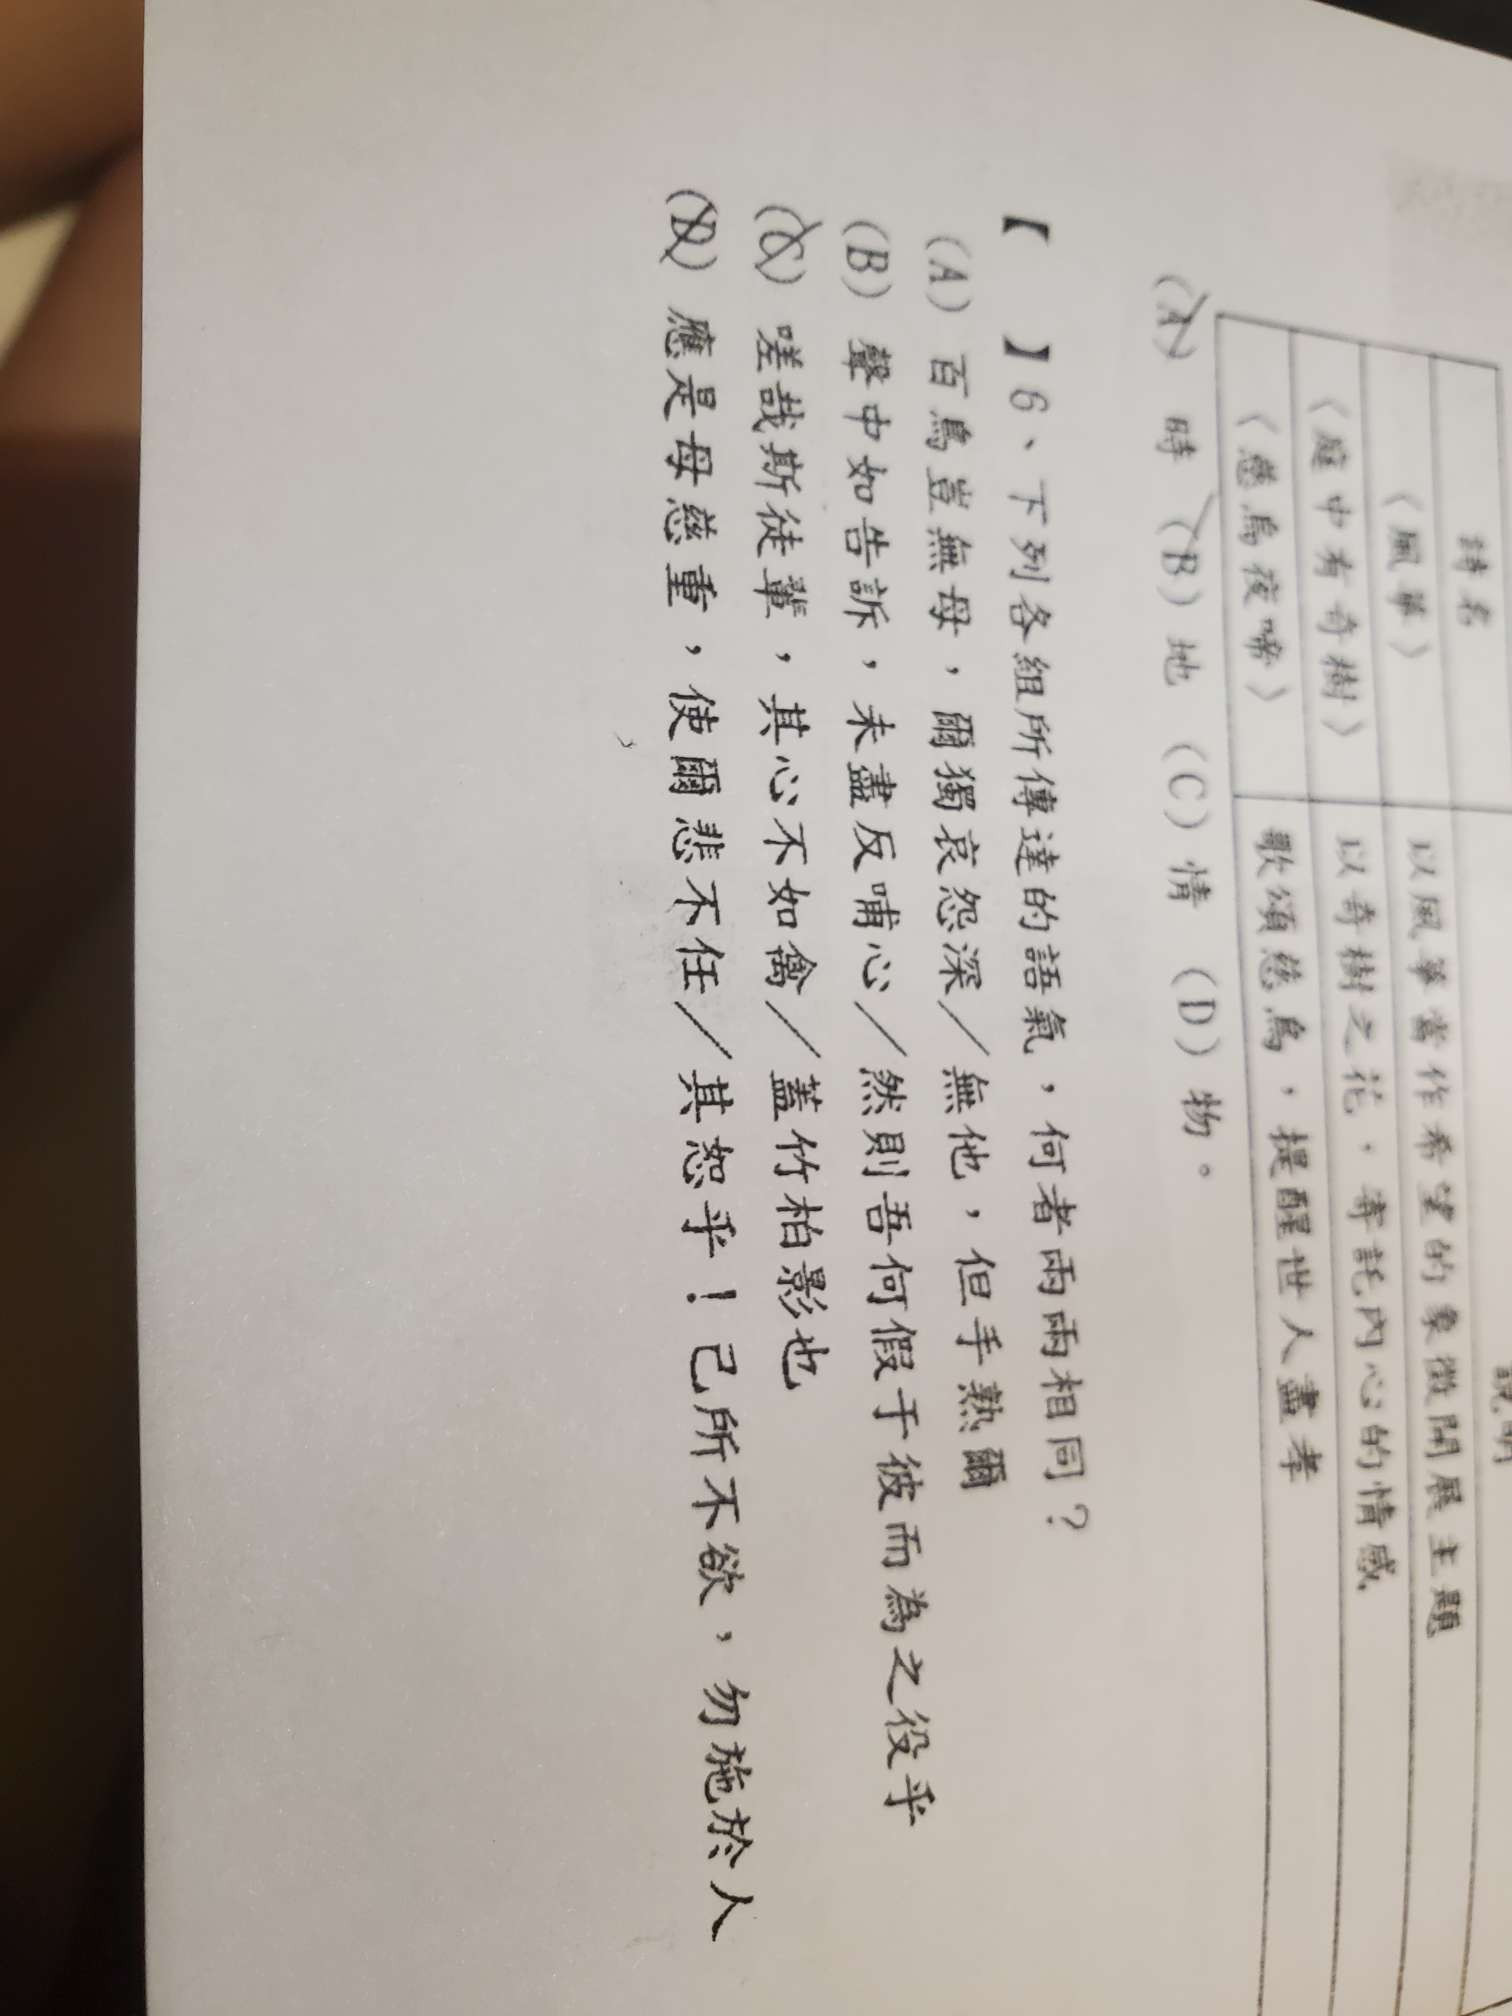 詩名 說明
〈風箏〉 以風箏當作希望的象徵開展主題
〈庭中有奇樹〉 以奇樹之花，寄託內心的情感
〈慈烏夜啼〉 歌頌慈烏，提醒世人盡孝
(A) 時 (B) 地 (C) 情 (D) 物。
【 】6、下列各組所傳達的語氣，何者兩兩相同？
(A) 百鳥豈無母，爾獨哀怨深／無他，但手熟爾
(B) 聲中如告訴，未盡反哺心／然則吾何假于彼而為之役乎
(C) 嗟哉斯徒輩，其心不如禽／蓋竹柏影也
(D) 應是母慈重，使爾悲不任／其恕乎！己所不欲，勿施於人